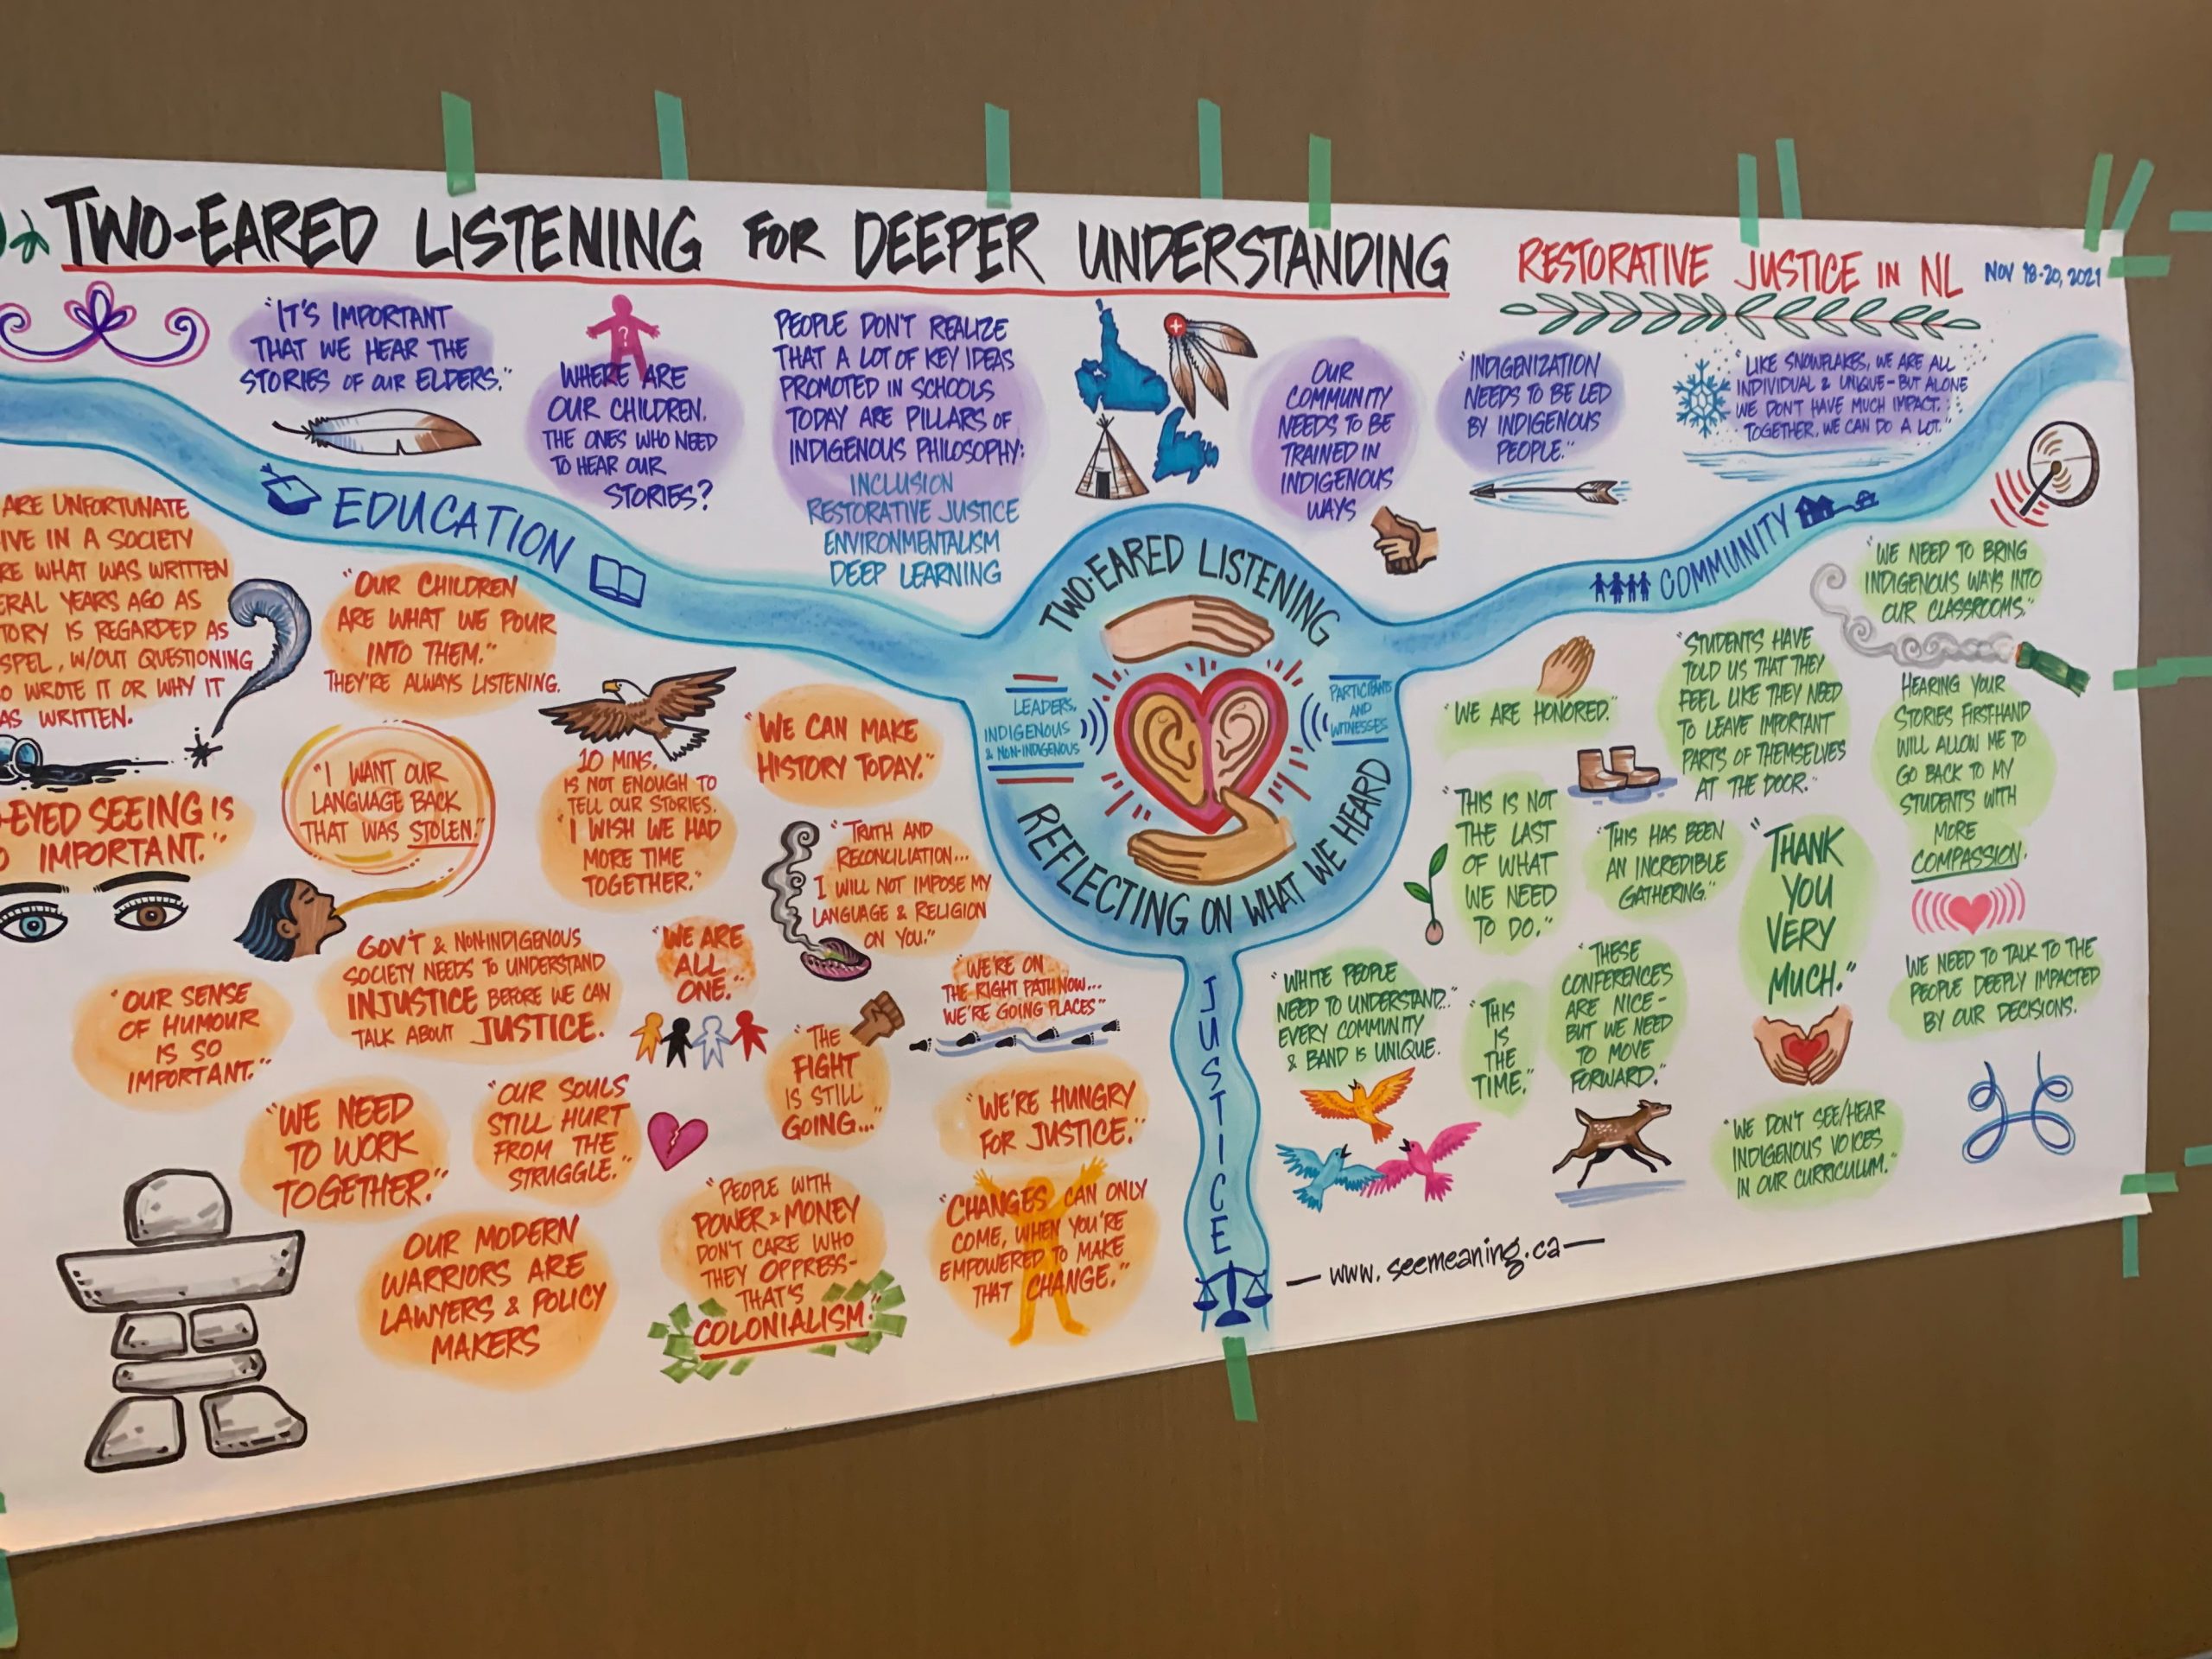 TWO-EARED LISTENING FOR DEEPER UNDERSTANDING
RESTORATIVE JUSTICE IN NL
NOV 18-20, 2021
"IT'S IMPORTANT
THAT WE HEAR THE
STORIES OF OUR ELDERS."
?
WHERE ARE
OUR CHILDREN.
THE ONES WHO NEED
TO HEAR OUR
STORIES?
PEOPLE DON'T REALIZE
THAT A LOT OF KEY IDEAS
PROMOTED IN SCHOOLS
TODAY ARE PILLARS OF
INDIGENOUS PHILOSOPHY:
INCLUSION
RESTORATIVE JUSTICE
ENVIRONMENTALISM
DEEP LEARNING
OUR
COMMUNITY
NEEDS TO BE
TRAINED IN
INDIGENOUS
WAYS
"INDIGENIZATION
NEEDS TO BE LED
BY INDIGENOUS
PEOPLE."
"LIKE SNOWFLAKES, WE ARE ALL
INDIVIDUAL & UNIQUE - BUT ALONE
WE DON'T HAVE MUCH IMPACT.
TOGETHER, WE CAN DO A LOT."
EDUCATION
COMMUNITY
JUSTICE
TWO-EARED LISTENING
LEADERS,
INDIGENOUS
& NON-INDIGENOUS
PARTICIPANTS
AND
WITNESSES
REFLECTING ON WHAT WE HEARD
ARE UNFORTUNATE
IVE IN A SOCIETY
RE WHAT WAS WRITTEN
ERAL YEARS AGO AS
TORY IS REGARDED AS
SPEL, W/OUT QUESTIONING
O WROTE IT OR WHY IT
AS WRITTEN.
"OUR CHILDREN
ARE WHAT WE POUR
INTO THEM."
THEY'RE ALWAYS LISTENING.
-EYED SEEING IS
O IMPORTANT."
"I WANT OUR
LANGUAGE BACK
THAT WAS STOLEN."
10 MINS.
IS NOT ENOUGH TO
TELL OUR STORIES.
"I WISH WE HAD
MORE TIME
TOGETHER."
"WE CAN MAKE
HISTORY TODAY."
"TRUTH AND
RECONCILIATION...
I WILL NOT IMPOSE MY
LANGUAGE & RELIGION
ON YOU."
"OUR SENSE
OF HUMOUR
IS SO
IMPORTANT."
GOV'T & NON-INDIGENOUS
SOCIETY NEEDS TO UNDERSTAND
INJUSTICE BEFORE WE CAN
TALK ABOUT JUSTICE.
"WE ARE
ALL
ONE."
"WE'RE ON
THE RIGHT PATH NOW...
WE'RE GOING PLACES"
"THE
FIGHT
IS STILL
GOING..."
"WE NEED
TO WORK
TOGETHER."
"OUR SOULS
STILL HURT
FROM THE
STRUGGLE."
"WE'RE HUNGRY
FOR JUSTICE."
OUR MODERN
WARRIORS ARE
LAWYERS & POLICY
MAKERS
"PEOPLE WITH
POWER & MONEY
DON'T CARE WHO
THEY OPPRESS-
THAT'S
COLONIALISM."
"CHANGES CAN ONLY
COME, WHEN YOU'RE
EMPOWERED TO MAKE
THAT CHANGE."
"WE NEED TO BRING
INDIGENOUS WAYS INTO
OUR CLASSROOMS."
"WE ARE HONORED."
"STUDENTS HAVE
TOLD US THAT THEY
FEEL LIKE THEY NEED
TO LEAVE IMPORTANT
PARTS OF THEMSELVES
AT THE DOOR."
HEARING YOUR
STORIES FIRSTHAND
WILL ALLOW ME TO
GO BACK TO MY
STUDENTS WITH
MORE
COMPASSION.
"THIS IS NOT
THE LAST
OF WHAT
WE NEED
TO DO."
"THIS HAS BEEN
AN INCREDIBLE
GATHERING."
"THANK
YOU
VERY
MUCH."
"WHITE PEOPLE
NEED TO UNDERSTAND..."
EVERY COMMUNITY
& BAND IS UNIQUE.
"THIS
IS
THE
TIME."
"THESE
CONFERENCES
ARE NICE -
BUT WE NEED
TO MOVE
FORWARD."
WE NEED TO TALK TO THE
PEOPLE DEEPLY IMPACTED
BY OUR DECISIONS.
"WE DON'T SEE/HEAR
INDIGENOUS VOICES
IN OUR CURRICULUM."
- www.seemeaning.ca -